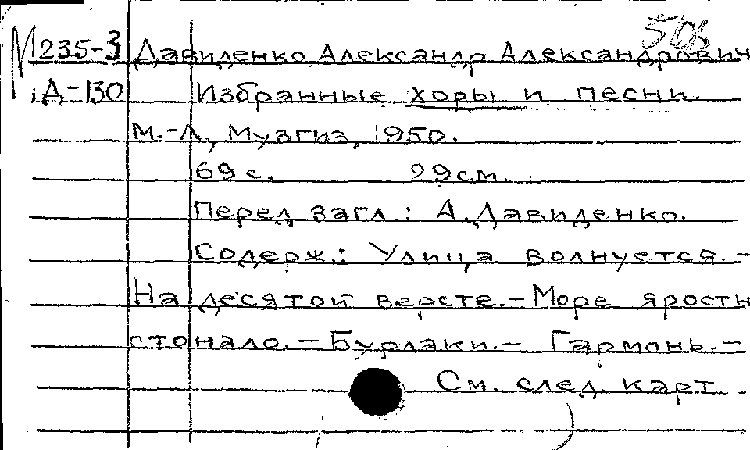 М235-3 Давиденко Александр Александрович
Д-130 Избранные хоры и песни
М.-Л., Музгиз, 1950.
69 с. 29 см.
Перед загл.: А. Давиденко.
Содерж.: Улица волнуется. -
На десятой версте. - Море ярость
стонало. - Бурлаки. - Гармонь. -
См. след. карт.